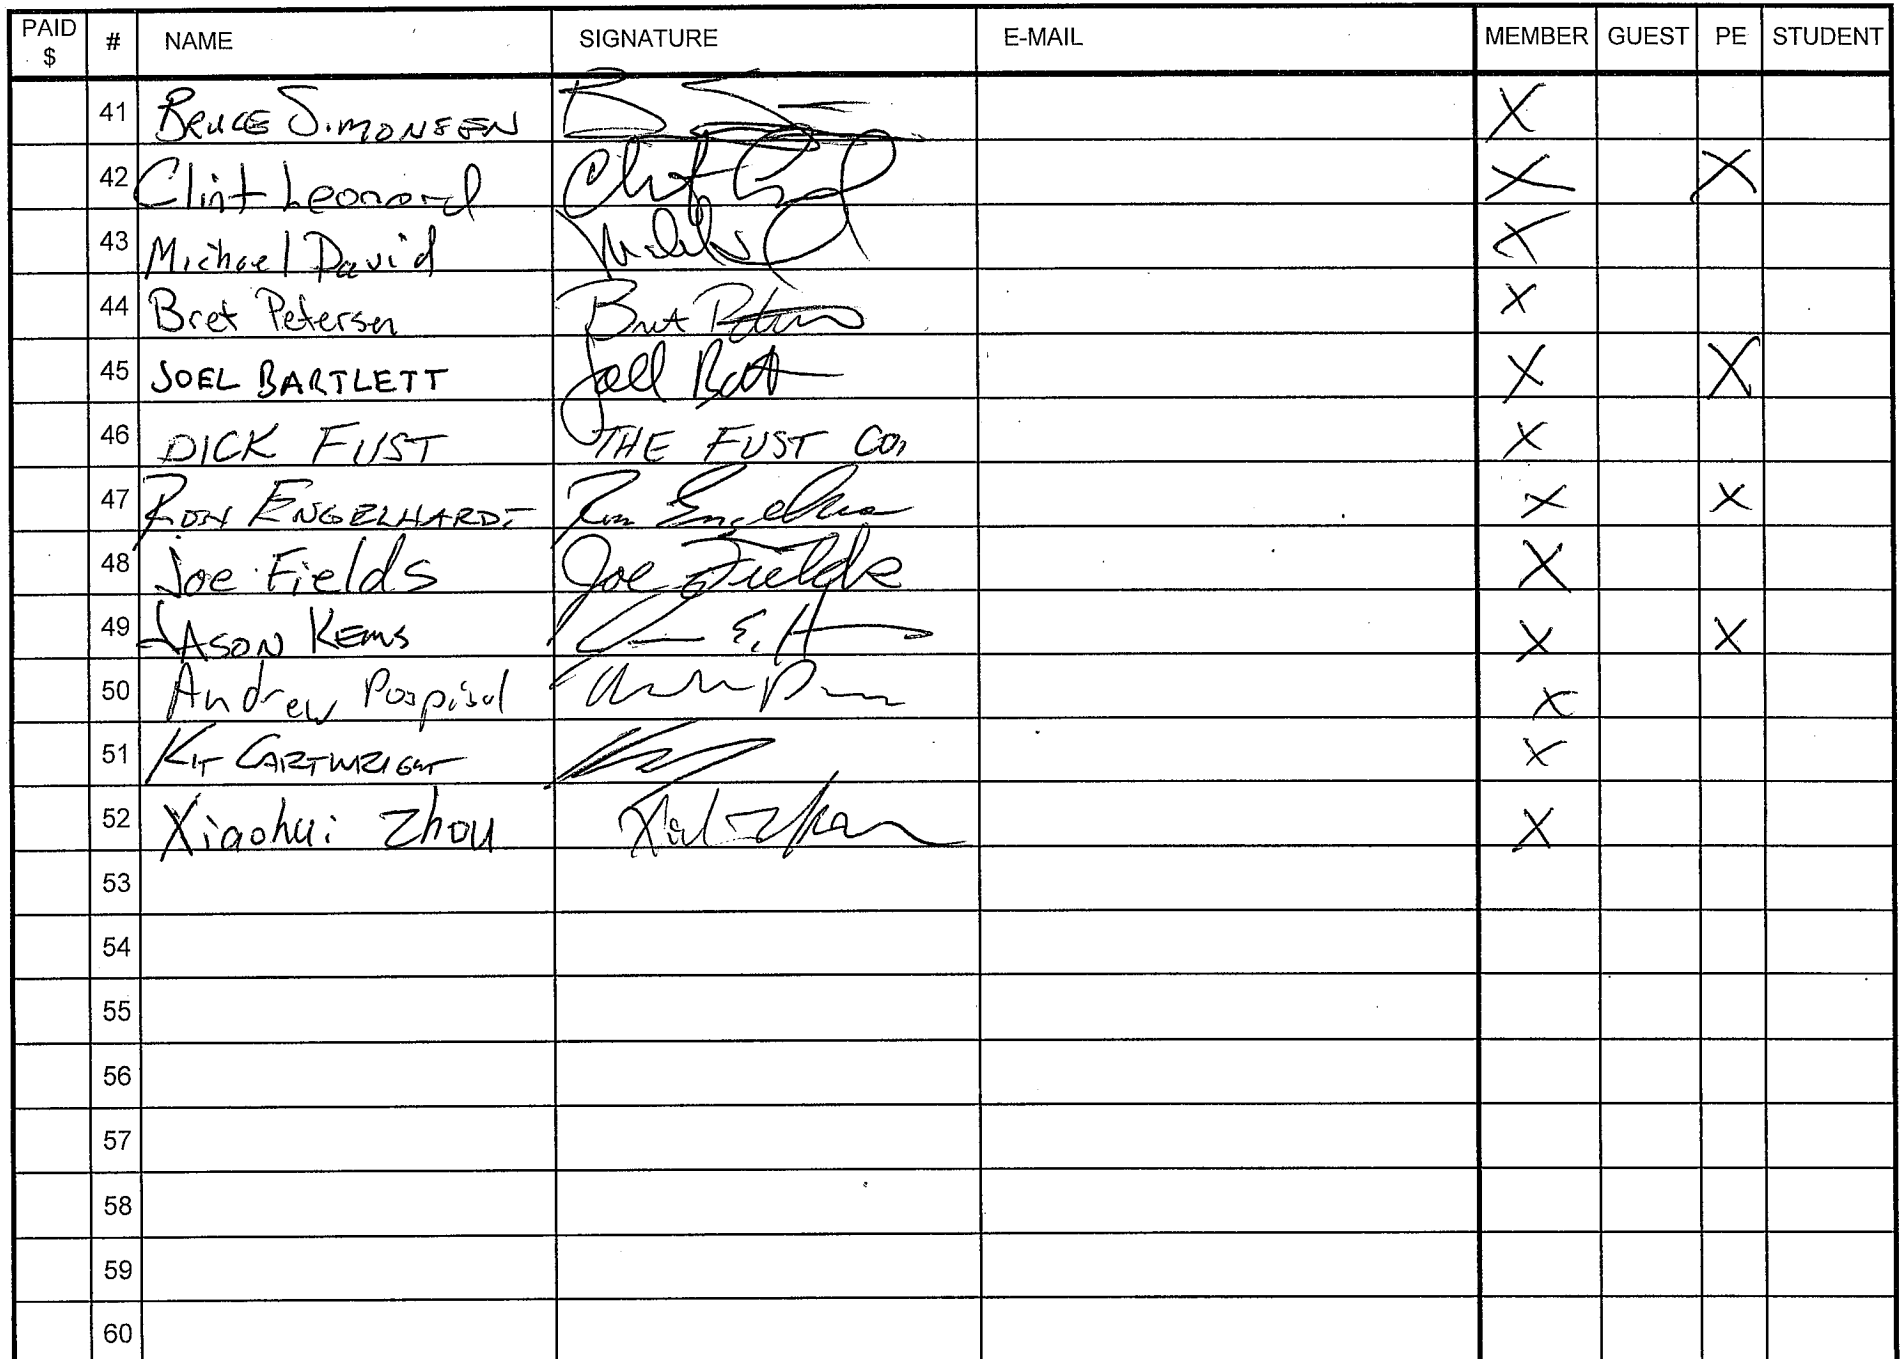 PAID $ # NAME SIGNATURE E-MAIL MEMBER GUEST PE STUDENT
41 BRUCE SIMONSEN X
42 Clint Leonard Clint X X
43 Michael David X
44 Bret Petersen Bret Petersen X
45 JOEL BARTLETT Joel Bartt X X
46 DICK FUST THE FUST CO. X
47 RON ENGELHARDT Ron Engelha X X
48 Joe Fields Joe Fields X
49 JASON KEMS X X
50 Andrew Pospisil X
51 KIT CARTWRIGHT X
52 Xiaohui Zhou X
53
54
55
56
57
58
59
60